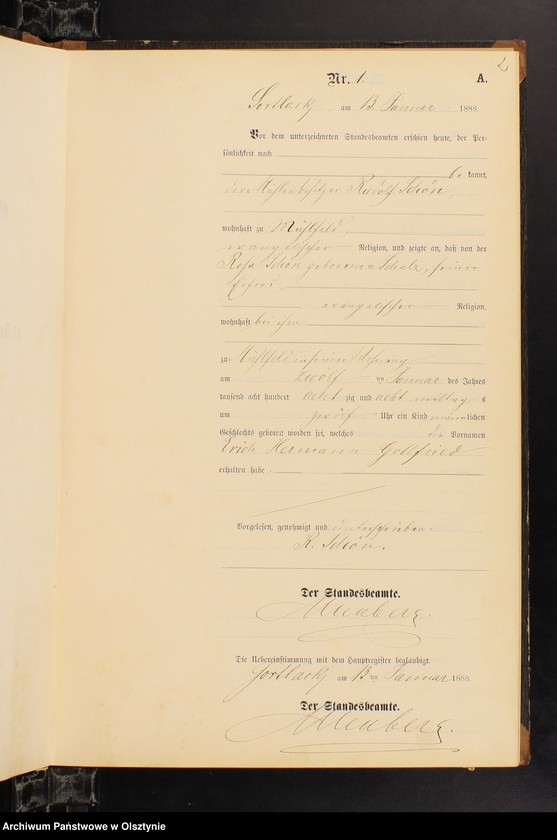 2
Nr. 1. A.
Sortlack am 13 Januar 1888.
Vor dem unterzeichneten Standesbeamten erschien heute, der Per-
sönlichkeit nach
be kannt,
der Mühlenbesitzer Rudolf Schön,
wohnhaft zu Mühlfeld,
evangelischer Religion, und zeigte an, daß von der
Rosa Schön geborenen Scholz, seiner
Ehefrau,
evangelischer Religion,
wohnhaft bei ihm
zu Mühlfeld in seiner Wohnung
am zwölf ten Januar des Jahres
tausend acht hundert acht zig und acht mittag s
um zwölf Uhr ein Kind männlichen
Geschlechts geboren worden sei, welches die Vornamen
Erich Hermann Gottfried
erhalten habe.
Vorgelesen, genehmigt und unterschrieben.
R. Schön.
Der Standesbeamte.
Die Uebereinstimmung mit dem Hauptregister beglaubigt.
Sortlack am 13 ten Januar 1888.
Der Standesbeamte.
Archiwum Państwowe w Olsztynie